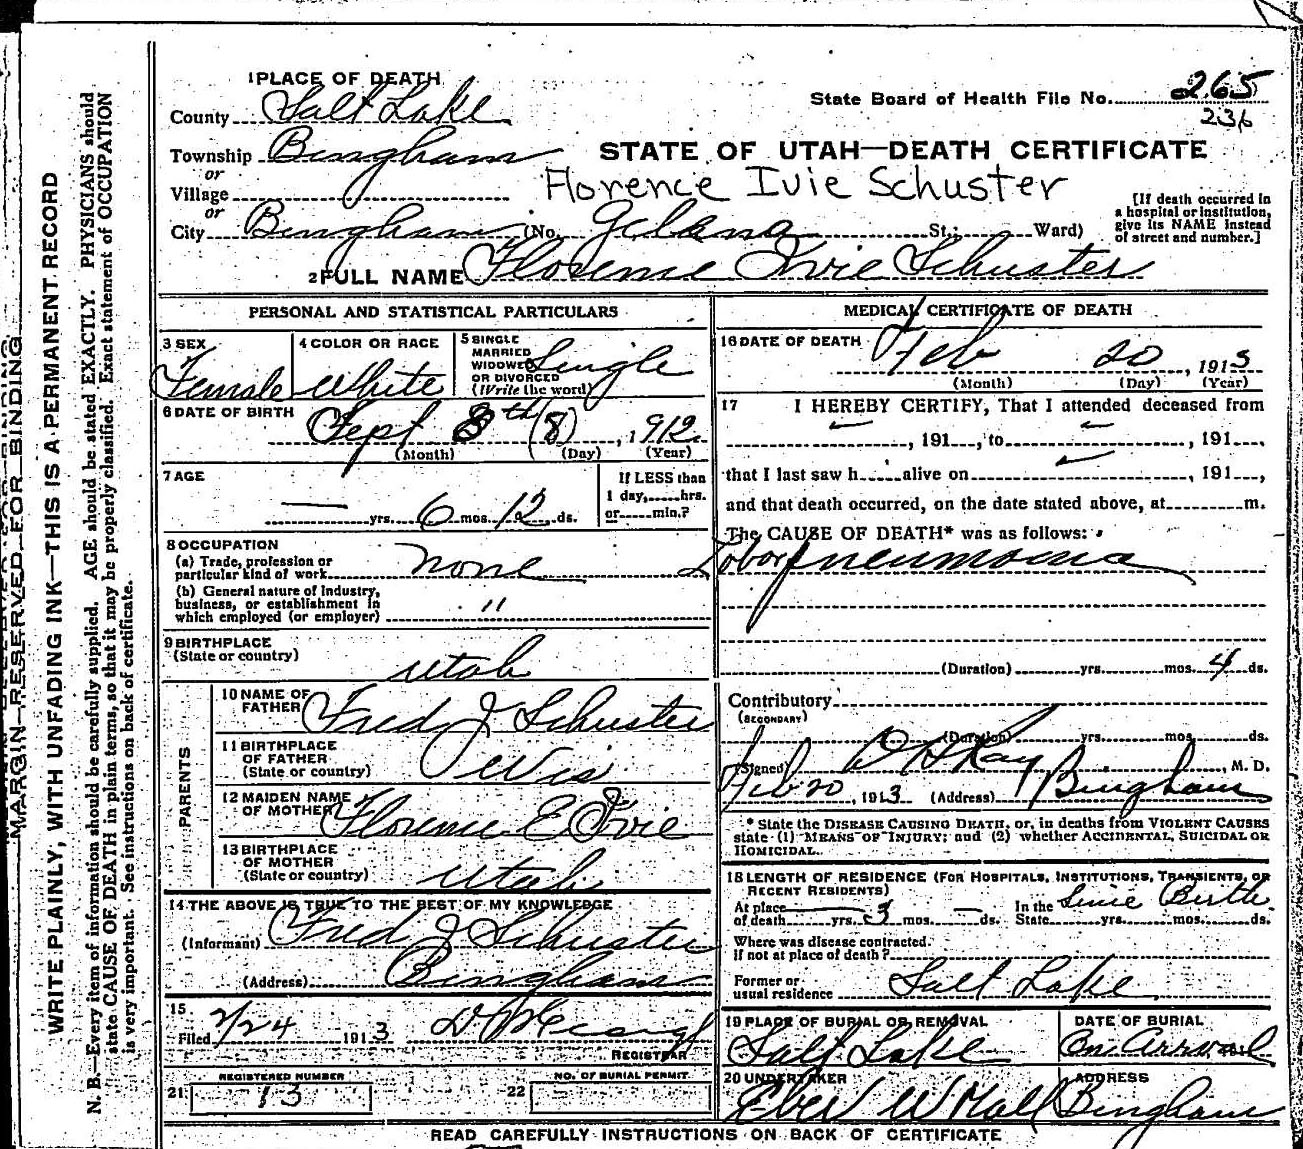 1 PLACE OF DEATH
County Salt Lake
State Board of Health File No. 265
236
Township Bingham
or
STATE OF UTAH—DEATH CERTIFICATE
Village
Florence Ivie Schuster
or
City Bingham (No. St.; Ward)
[If death occurred in
a hospital or institution,
give its NAME instead
of street and number.]
2 FULL NAME Florence Ivie Schuster
PERSONAL AND STATISTICAL PARTICULARS
3 SEX
Female
4 COLOR OR RACE
White
5 SINGLE
MARRIED
WIDOWED
OR DIVORCED
(Write the word)
Single
6 DATE OF BIRTH
Sept 8th (8), 1912
(Month) (Day) (Year)
7 AGE
— yrs. 6 mos. 12 ds.
If LESS than
1 day, hrs.
or min.?
8 OCCUPATION
(a) Trade, profession or
particular kind of work none
(b) General nature of Industry,
business, or establishment in
which employed (or employer) "
9 BIRTHPLACE
(State or country)
Utah
PARENTS
10 NAME OF
FATHER
Fred J Schuster
11 BIRTHPLACE
OF FATHER
(State or country)
Wis
12 MAIDEN NAME
OF MOTHER
Florence E Ivie
13 BIRTHPLACE
OF MOTHER
(State or country)
Utah
14 THE ABOVE IS TRUE TO THE BEST OF MY KNOWLEDGE
(Informant) Fred J Schuster
(Address) Bingham
15
Filed 2/24 1913
REGISTRAR
REGISTERED NUMBER
21 13
NO. OF BURIAL PERMIT.
22
MEDICAL CERTIFICATE OF DEATH
16 DATE OF DEATH
Feb 20, 1913
(Month) (Day) (Year)
17 I HEREBY CERTIFY, That I attended deceased from
, 191 , to , 191 ,
that I last saw h alive on , 191 ,
and that death occurred, on the date stated above, at m.
The CAUSE OF DEATH* was as follows:
Lobar pneumonia
(Duration) yrs. mos. 4 ds.
Contributory
(SECONDARY)
(Duration) yrs. mos. ds.
(Signed) , M. D.
Feb 20, 1913 (Address) Bingham
* State the DISEASE CAUSING DEATH, or, in deaths from VIOLENT CAUSES
state (1) MEANS OF INJURY; and (2) whether ACCIDENTAL, SUICIDAL OR
HOMICIDAL.
18 LENGTH OF RESIDENCE (FOR HOSPITALS, INSTITUTIONS, TRANSIENTS, OR
RECENT RESIDENTS)
At place
of death — yrs. 3 mos. — ds.
In the
State yrs. mos. ds.
Since Birth
Where was disease contracted.
If not at place of death?
Former or
usual residence Salt Lake
19 PLACE OF BURIAL OR REMOVAL
Salt Lake
DATE OF BURIAL
On Arrival
20 UNDERTAKER
Eber W Hall
ADDRESS
Bingham
READ CAREFULLY INSTRUCTIONS ON BACK OF CERTIFICATE
MARGIN RESERVED FOR BINDING
WRITE PLAINLY, WITH UNFADING INK—THIS IS A PERMANENT RECORD
N. B.—Every item of information should be carefully supplied. AGE should be stated EXACTLY. PHYSICIANS should
state CAUSE OF DEATH in plain terms, so that it may be properly classified. Exact statement of OCCUPATION
is very important. See instructions on back of certificate.